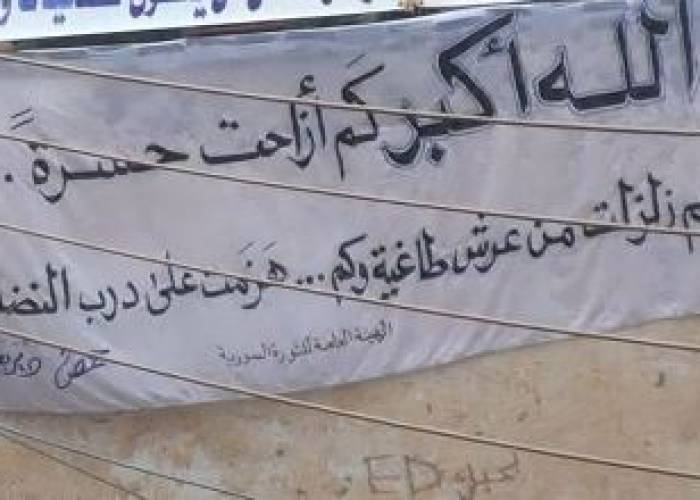 الله أكبر كم أزاحت حسرةً ..
زلزلت من عرش طاغية وكم ... هزمت على درب
الهيئة العامة للثورة السورية
حمص
ED